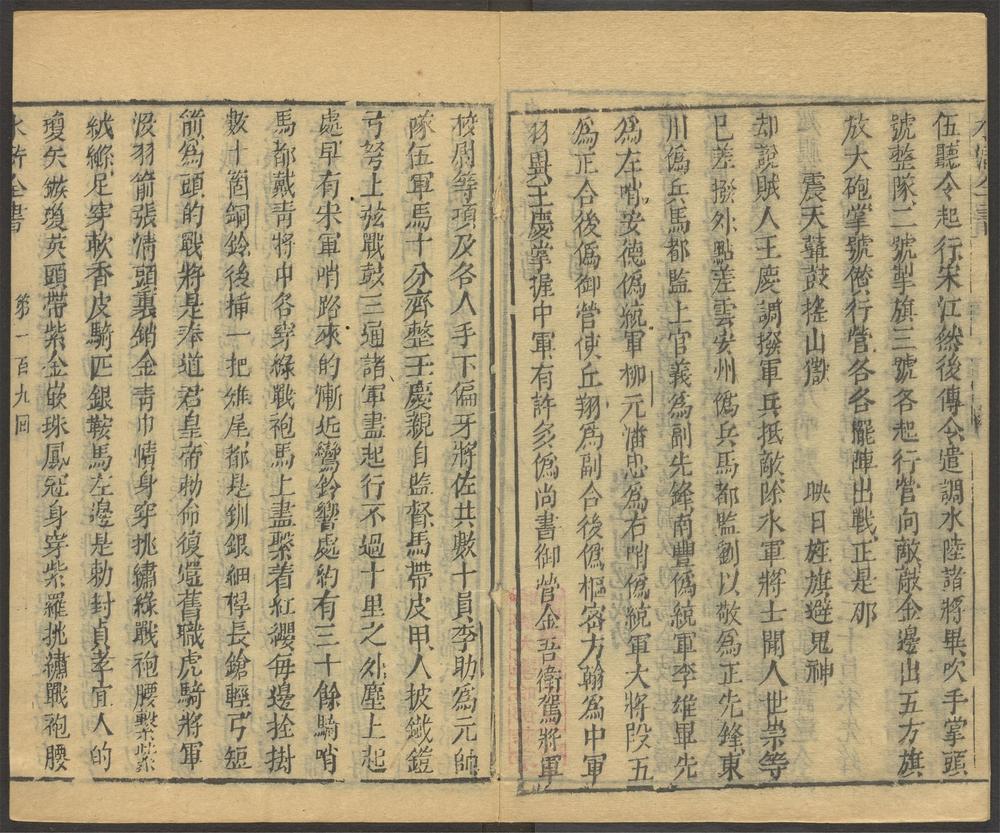 伍聽令起行宋江然後傳令遣調水陸諸將畢吹手掌頭
號整隊二號掣旗三號各起行營向敵敵金邊出五方旗
放大砲掌號儹行營各各擺陣出戰正是那
震天鞞鼓搖山嶽　映日旌旗避鬼神
却說賊人王慶調撥軍兵抵敵除水軍將士聞人世崇等
已差撥外點差雲安州僞兵馬都監劉以敬爲正先鋒東
川僞兵馬都監上官義爲副先鋒南豐僞統軍李雄畢先
爲左哨安德僞統軍柳元潘忠爲右哨僞統軍大將段五
爲正合後僞御營使丘翔爲副合後僞樞密方翰爲中軍
羽翼王慶掌握中軍有許多僞尚書御營金吾衛駕將軍
校尉等項及各人手下偏牙將佐共數十員李助爲元帥
隊伍軍馬十分濟整王慶親自監督馬帶皮甲人披鐵鎧
弓弩上弦戰鼓三通諸軍盡起行不過十里之外塵土起
處早有宋軍哨路來的漸近鸞鈴響處約有三十餘騎哨
馬都戴青將巾各穿綠戰袍馬上盡繫着紅纓每邊拴掛
數十箇銅鈴後插一把雉尾都是釧銀細桿長鎗輕弓短
箭爲頭的戰將是奉道君皇帝勅命復還舊職虎騎將軍
沒羽箭張清頭裹銷金青巾幘身穿挑繡綠戰袍腰繫紫
絨縧足穿軟香皮騎匹銀鞍馬左邊是勅封貞孝宜人的
瓊矢鏃瓊英頭帶紫金嵌珠鳳冠身穿紫羅挑繡戰袍腰
水滸全書　第一百九回